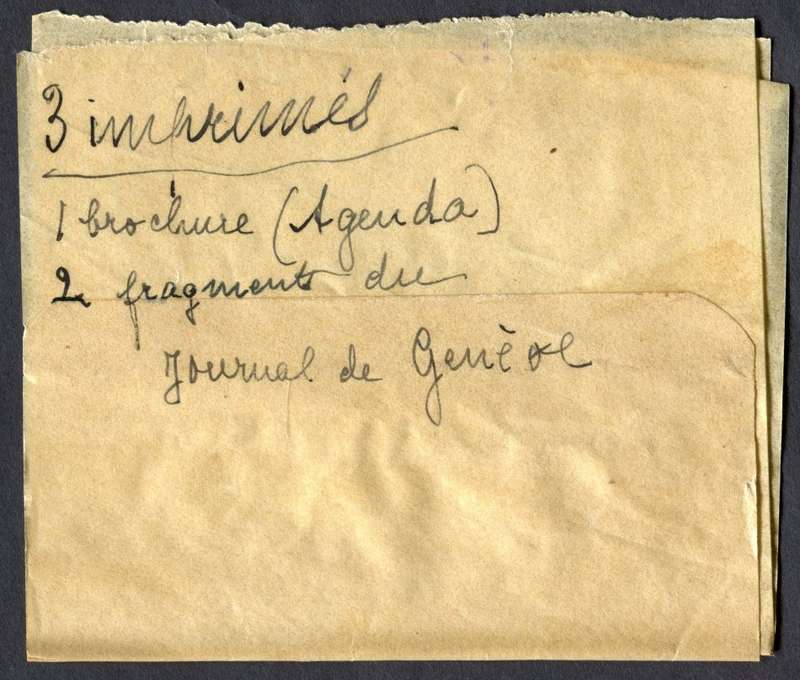 3 imprimés
1 brochure (Agenda)
2 fragments du
Journal de Genève